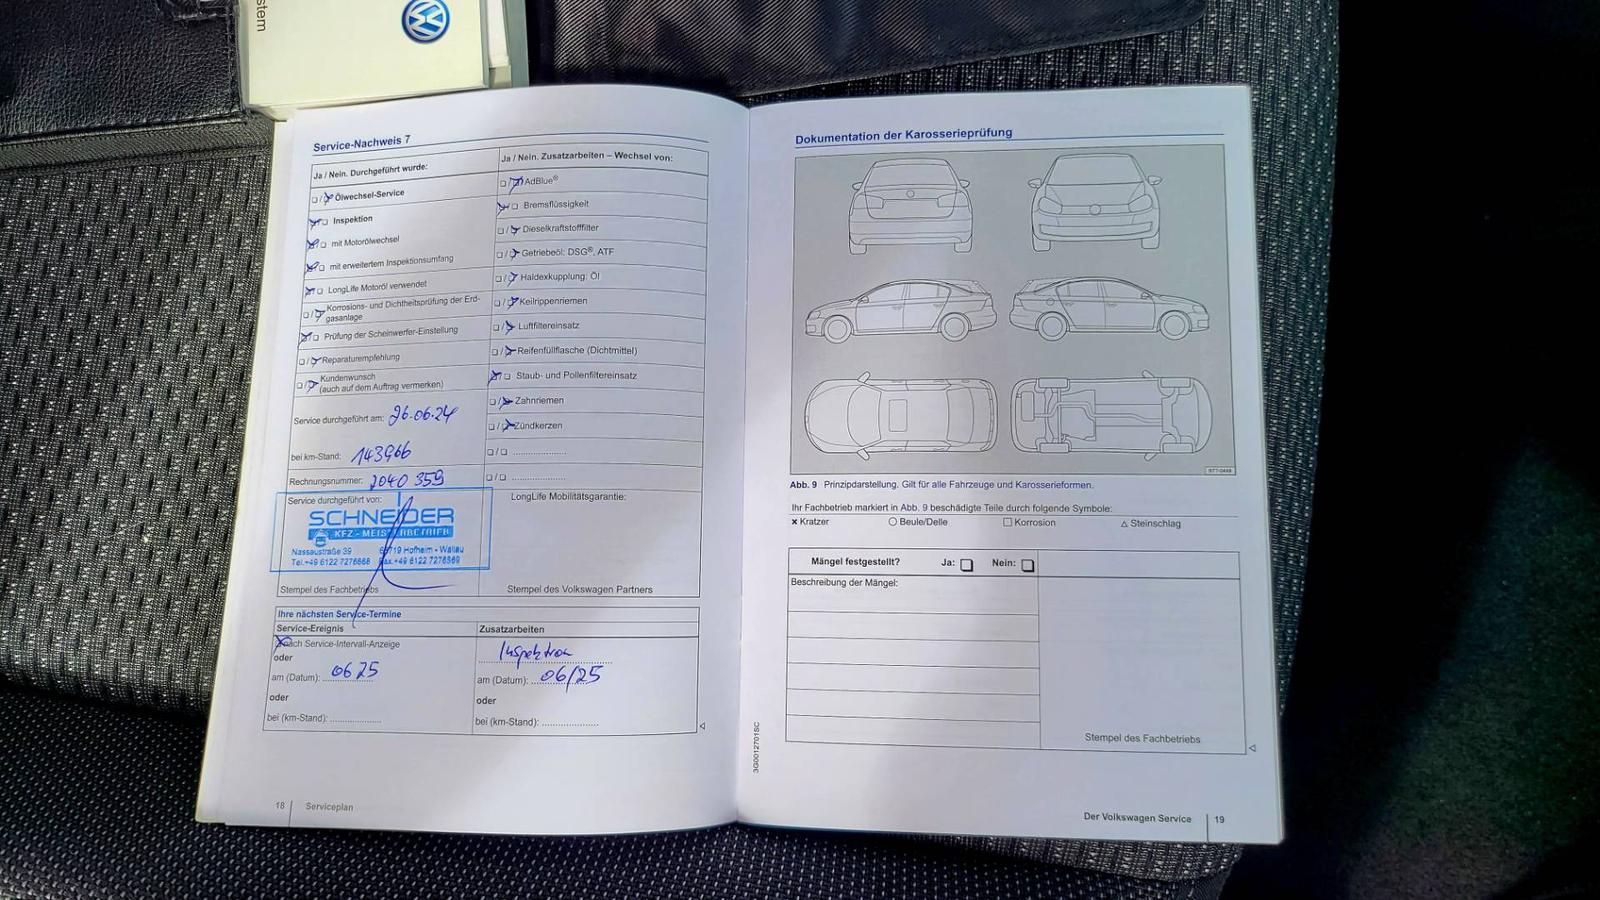 stem
Service-Nachweis 7
Ja / Nein. Durchgeführt wurde:
Ölwechsel-Service
Inspektion
mit Motorölwechsel
mit erweitertem Inspektionsumfang
LongLife Motoröl verwendet
Korrosions- und Dichtheitsprüfung der Erd-
gasanlage
Prüfung der Scheinwerfer-Einstellung
Reparaturempfehlung
Kundenwunsch
(auch auf dem Auftrag vermerken)
Service durchgeführt am: 26.06.24
bei km-Stand: 143966
Rechnungsnummer: 2040 359
Service durchgeführt von:
SCHNEIDER
KFZ - MEISTERBETRIEB
Nassaustraße 39 65719 Hofheim - Wallau
Tel.+49 6122 7276868 Fax.+49 6122 7276869
Stempel des Fachbetriebs
Ja / Nein. Zusatzarbeiten – Wechsel von:
AdBlue®
Bremsflüssigkeit
Dieselkraftstofffilter
Getriebeöl: DSG®, ATF
Haldexkupplung: Öl
Keilrippenriemen
Luftfiltereinsatz
Reifenfüllflasche (Dichtmittel)
Staub- und Pollenfiltereinsatz
Zahnriemen
Zündkerzen
LongLife Mobilitätsgarantie:
Stempel des Volkswagen Partners
Ihre nächsten Service-Termine
Service-Ereignis
nach Service-Intervall-Anzeige
oder
am (Datum): 06 25
oder
bei (km-Stand):
Zusatzarbeiten
Inspektion
am (Datum): 06/25
oder
bei (km-Stand):
18 Serviceplan
Dokumentation der Karosserieprüfung
Abb. 9 Prinzipdarstellung. Gilt für alle Fahrzeuge und Karosserieformen.
Ihr Fachbetrieb markiert in Abb. 9 beschädigte Teile durch folgende Symbole:
× Kratzer ○ Beule/Delle □ Korrosion △ Steinschlag
Mängel festgestellt? Ja: Nein:
Beschreibung der Mängel:
Stempel des Fachbetriebs
3G0012701SC
Der Volkswagen Service 19